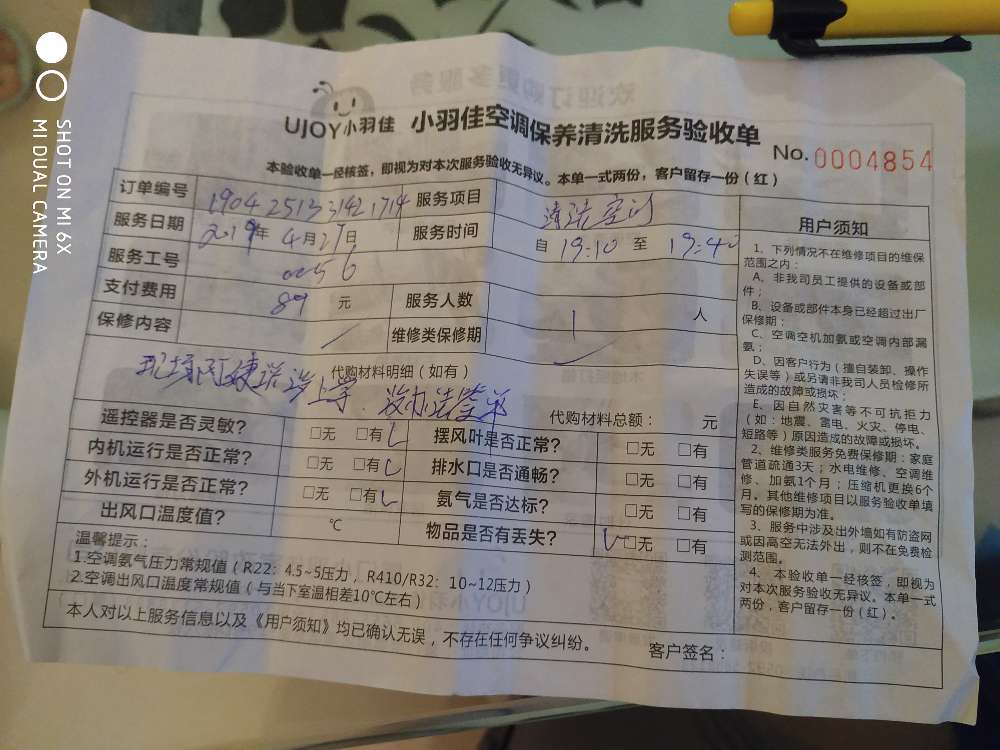 UJOY小羽佳 小羽佳空调保养清洗服务验收单
No. 0004854
本验收单一经核签，即视为对本次服务验收无异议。本单一式两份，客户留存一份（红）
订单编号 1904 2513 3142 1714 服务项目 清洗空调
服务日期 2019年4月27日 服务时间 自 19:10 至 19:40
服务工号 0056
支付费用 89 元 服务人数 1 人
保修内容 / 维修类保修期
代购材料明细（如有）
代购材料总额： 元
遥控器是否灵敏？ □无 □有 摆风叶是否正常？ □无 □有
内机运行是否正常？ □无 □有 排水口是否通畅？ □无 □有
外机运行是否正常？ □无 □有 氨气是否达标？ □无 □有
出风口温度值？ ℃ 物品是否有丢失？ □无 □有
温馨提示：
1.空调氨气压力常规值（R22：4.5~5压力，R410/R32：10~12压力）
2.空调出风口温度常规值（与当下室温相差10℃左右）
本人对以上服务信息以及《用户须知》均已确认无误，不存在任何争议纠纷。
客户签名：
用户须知
1、下列情况不在维修项目的维保
范围之内：
A、非我司员工提供的设备或部
件；
B、设备或部件本身已经超过出厂
保修期；
C、空调空机加氨或空调内部漏
氨；
D、因客户行为（擅自装卸、操作
失误等）或另请非我司人员检修所
造成的故障或损坏；
E、因自然灾害等不可抗拒力
（如：地震、雷电、火灾、停电、
短路等）原因造成的故障或损坏。
2、维修类服务免费保修期：家庭
管道疏通3天；水电维修、空调维
修、加氨1个月；压缩机更换6个
月。其他维修项目以服务验收单填
写的保修期为准。
3、服务中涉及出外墙如有防盗网
或因高空无法外出，则不在免费检
测范围。
4、本验收单一经核签，即视为
对本次服务验收无异议。本单一式
两份，客户留存一份（红）。
SHOT ON MI 6X
MI DUAL CAMERA